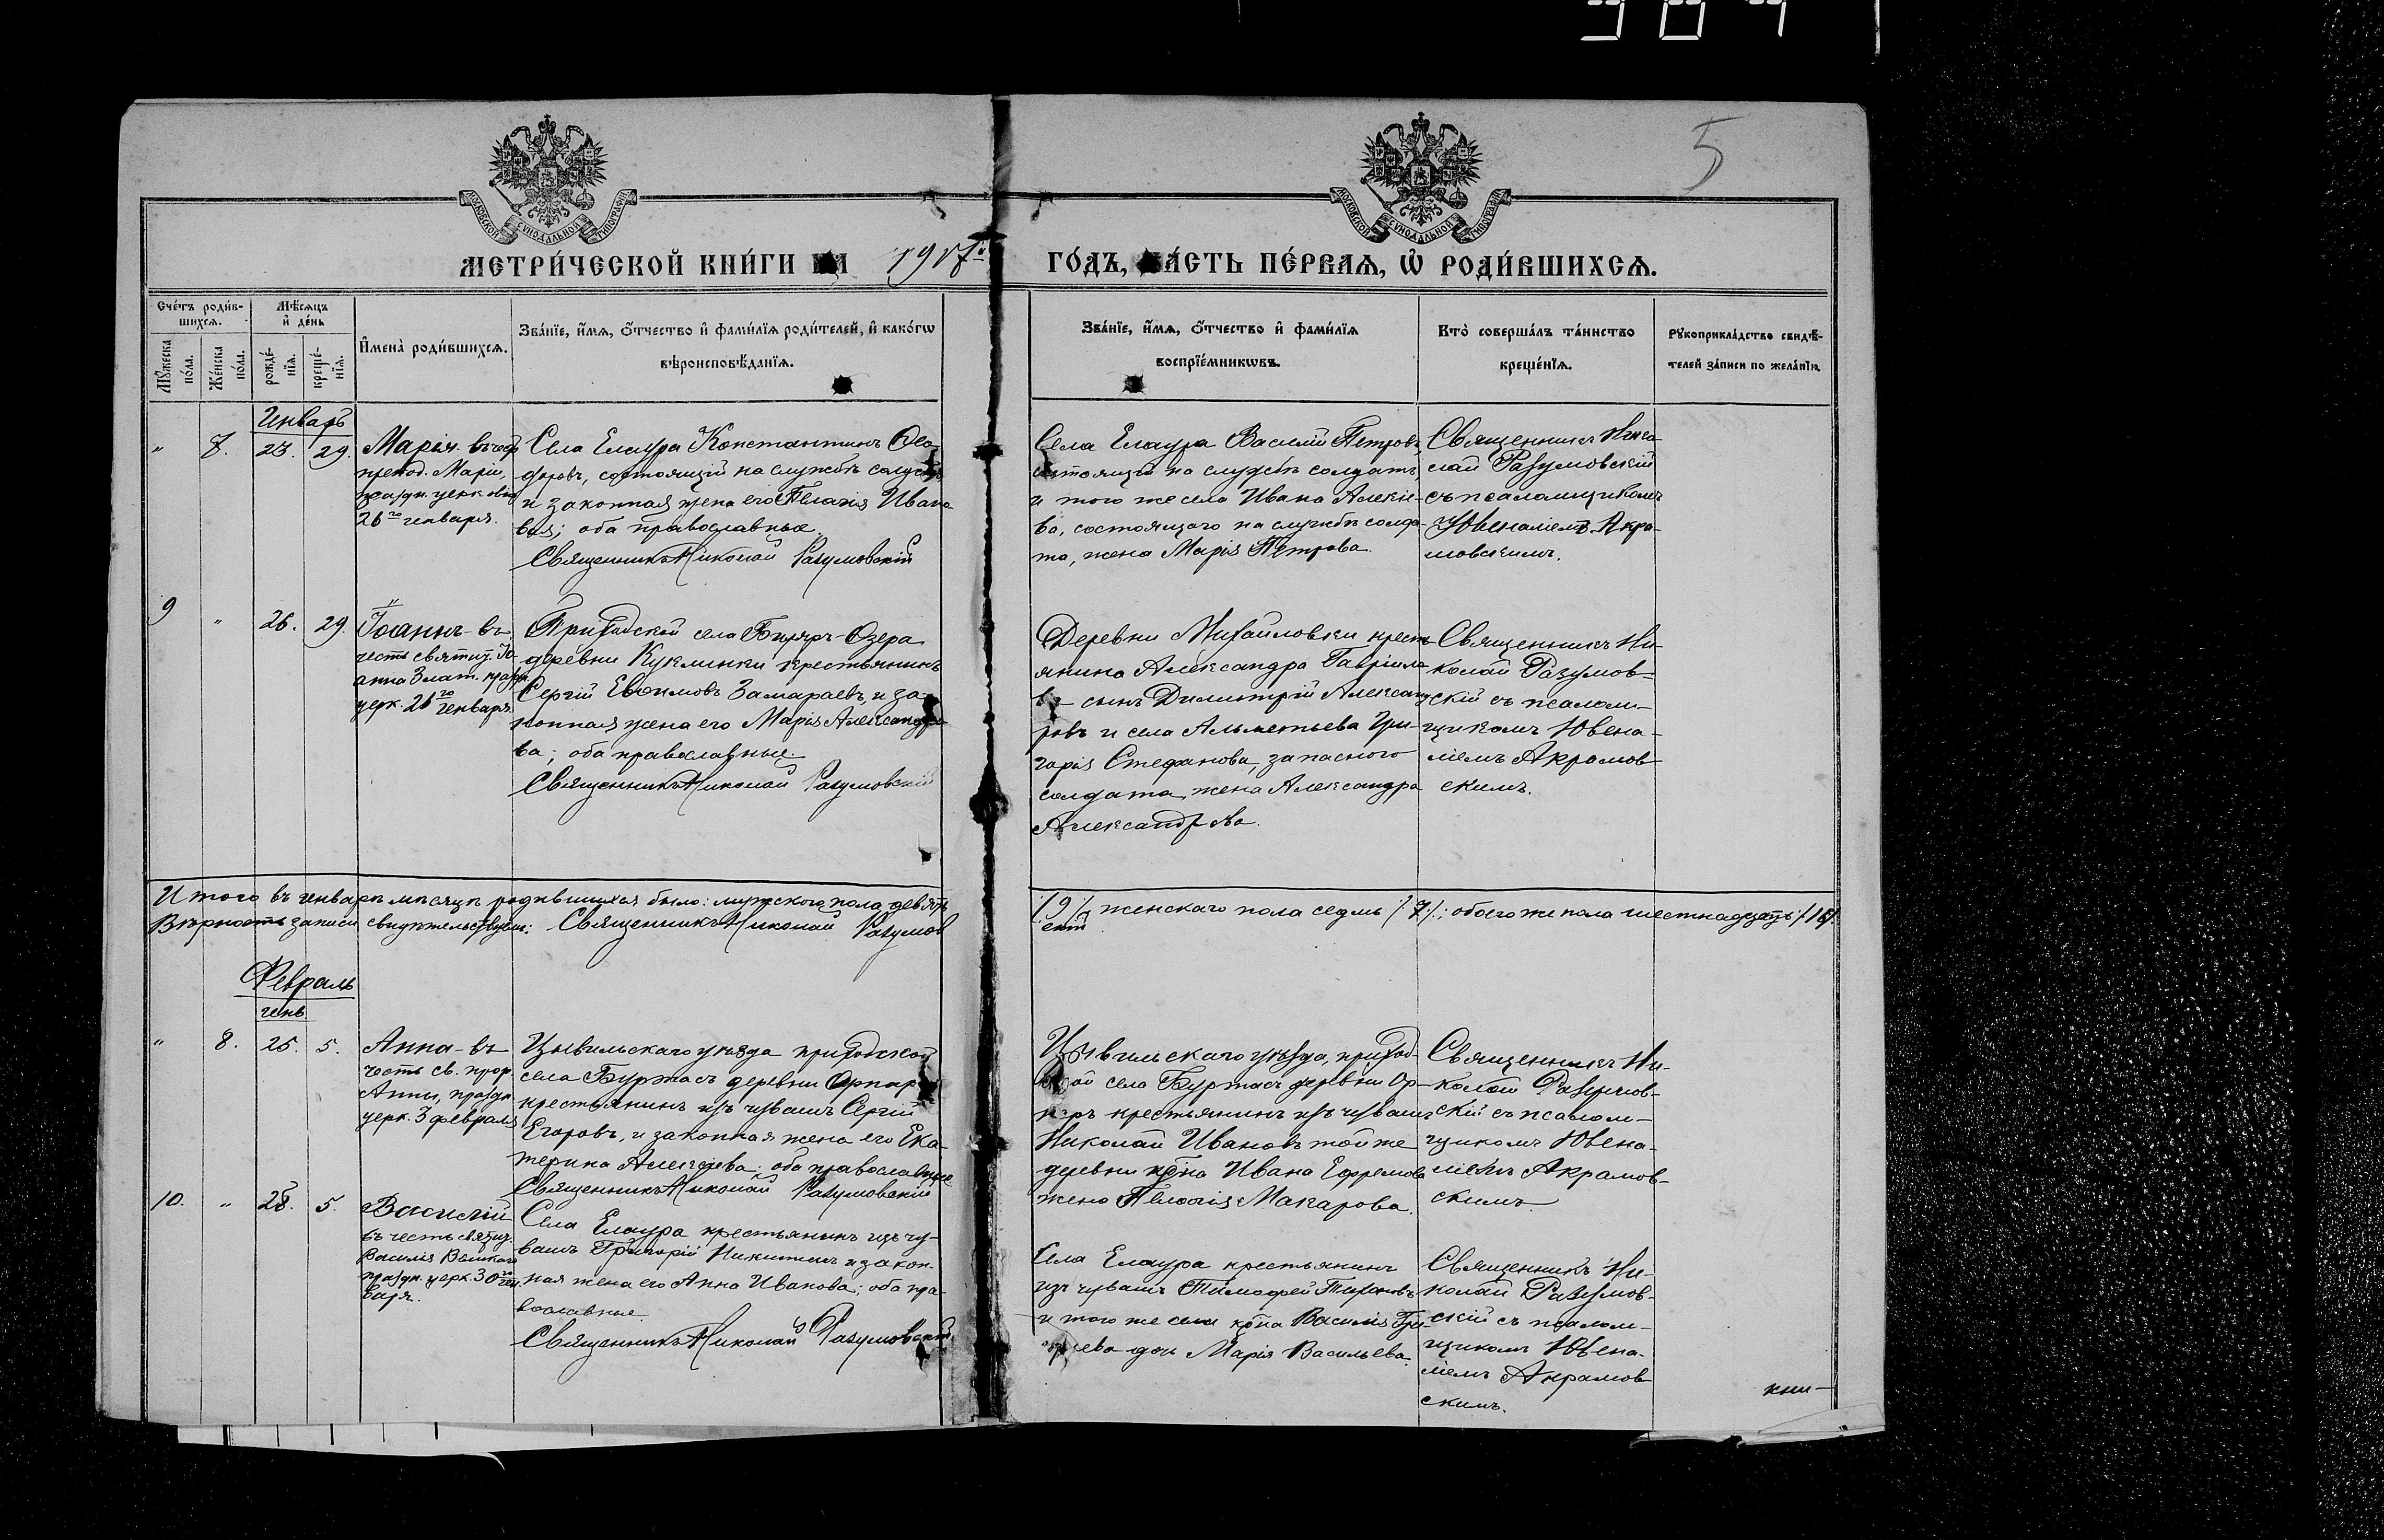 5
МЕТРИ́ЧЕСКОЙ КНИ́ГИ НА 1917й ГО́ДЪ, ЧА́СТЬ ПЕ́РВАЯ, Ѡ҆ РОДИ́ВШИХСЯ.
Сче́тъ роди́в-
шихся.
Мꙋ́жеска по́ла.
Же́нска по́ла.
Мѣ́сяцъ и҆ де́нь
рожде́-
нїя.
креще́-
нїя.
И҆мена̀ роди́вшихся.
Зва́нїе, и҆́мя, ѻ҆́тчество и҆ фами́лїя роди́телей, и҆ како́гѡ
вѣроисповѣ́данїя.
Зва́нїе, и҆́мя, ѻ҆́тчество и҆ фами́лїя
воспрїе́мникѡвъ.
Кто̀ соверша́лъ та́инство
креще́нїя.
Рꙋкоприкла́дство свидѣ́-
телей за́писи по жела́нїю.
Генварь
" 7. 23. 29.
Марія въ чест
препод. Маріи,
праздн. церковію
26го генваря.
Села Елаура Константинъ Ѳео-
доровъ, состоящій на службѣ солдатъ
и законная жена его Пелагія Ивано-
ва; оба православные.
Священникъ Николай Разумовскій
Села Елаура Василій Петровъ,
состоящій на службѣ солдатъ,
и того же села Ивана Алексѣе-
ва, состоящаго на службѣ солда-
та, жена Марія Петрова.
Священникъ Нико-
лай Разумовскій
съ псаломщикомъ
Ювеналіемъ Акра-
мовскимъ.
9 " 26. 29.
Іоаннъ - въ
честь святит. Іо-
анна Злат. праздн.
церк. 26го генваря.
Приходской села Биляръ-Озера
деревни Куклинки крестьянинъ
Сергій Евѳимовъ Замараевъ, и за-
конная жена его Марія Александро-
ва; оба православные.
Священникъ Николай Разумовскій
Деревни Михайловки кресть-
янина Александра Гавріило-
ва сынъ Димитрій Александ-
ровъ и села Альметьева Гри-
горія Стефанова, запасного
солдата, жена Александра
Александрова.
Священникъ Ни-
колай Разумов-
скій съ псалом-
щикомъ Ювена-
ліемъ Акрамов-
скимъ.
Итого въ генварѣ мѣсяцѣ родившихся было: мужского пола девять /9/, женскаго пола седмь /7/; обоего же пола шестнадцать /16/.
Вѣрность записи свидѣтельствуемъ: Священникъ Николай Разумов
Февраль
генв.
" 8. 25. 5.
Анна - въ
честь св. прор.
Анны, праздн.
церк. 3 февраля
Цывильскаго уѣзда приходской
села Буртасъ деревни Орнаръ
крестьянинъ изъ чувашъ Сергій
Егоровъ, и законная жена его Ека-
терина Алексѣева; оба православные
Священникъ Николай Разумовскій
Цывильскаго уѣзда, приход-
ской села Буртасъ деревни Ор-
наръ крестьянинъ изъ чувашъ
Николай Ивановъ той же
деревни кр҃на Ивана Ефремова
жена Пелагія Макарова.
Священникъ Ни-
колай Разумов-
скій съ псалом-
щикомъ Ювена-
ліемъ Акрамов-
скимъ.
10. " 28. 5.
Василій
въ честь святит.
Василія Великаго
праздн. церк. 30го ген-
варя.
Села Елаура крестьянинъ изъ чу-
вашъ Григорій Никитинъ и закон-
ная жена его Анна Иванова; оба пра-
вославные.
Священникъ Николай Разумовскій
Села Елаура крестьянинъ
изъ чувашъ Тимофей Тихоновъ
и того же села кр҃на Василія Гри-
горьева дочь Марія Васильева.
Священникъ Ни-
колай Разумов-
скій съ псалом-
щикомъ Ювена-
ліемъ Акрамов-
скимъ.
кни-